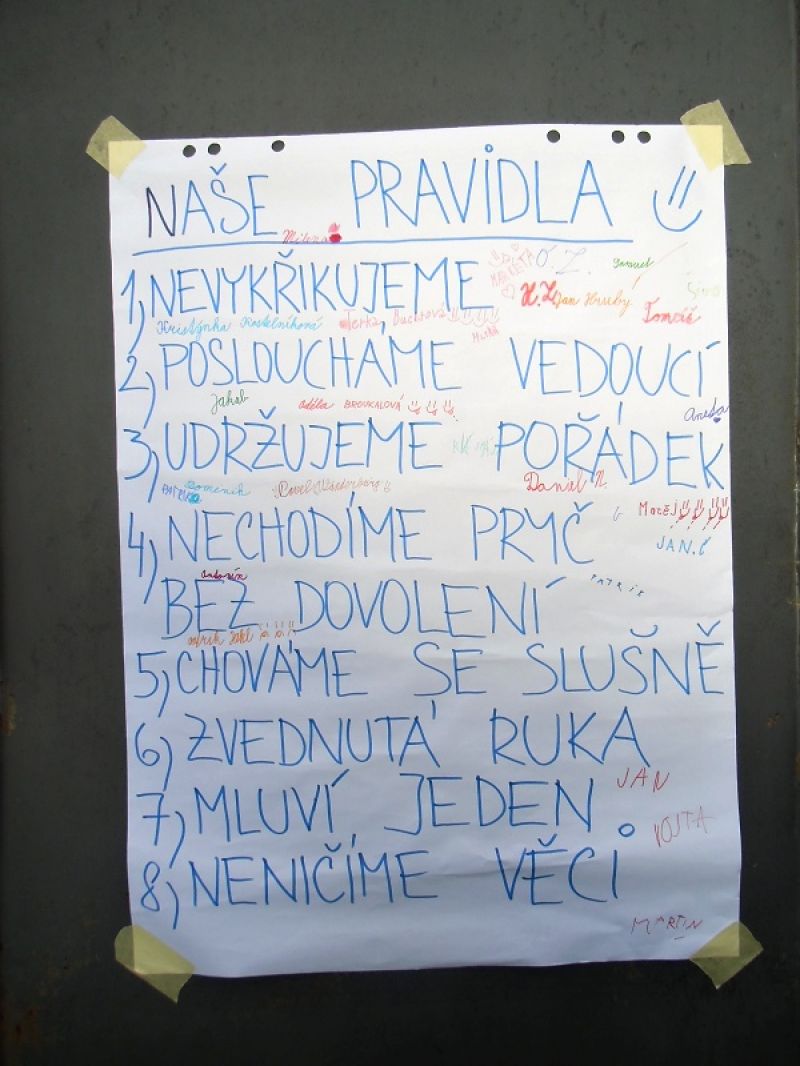 NAŠE PRAVIDLA
Milena
1, NEVYKŘIKUJEME
MARKÉTA
O. Z.
Samuel
H. Z.
Jan Hruby
Tomáš
Kristýnka Kostelníková
Terka Buchtová
2, POSLOUCHÁME VEDOUCÍ
Jakub
Adéla BROUKALOVÁ
Aneta
3, UDRŽUJEME POŘÁDEK
Dominik
Daniel K.
Matěj
4, NECHODÍME PRYČ
JAN.Č
Antonín
PATRIK
BEZ DOVOLENÍ
5, CHOVÁME SE SLUŠNĚ
6, ZVEDNUTÁ RUKA
JAN
7, MLUVÍ JEDEN
VOJTA
8, NENIČÍME VĚCI
MARTIN